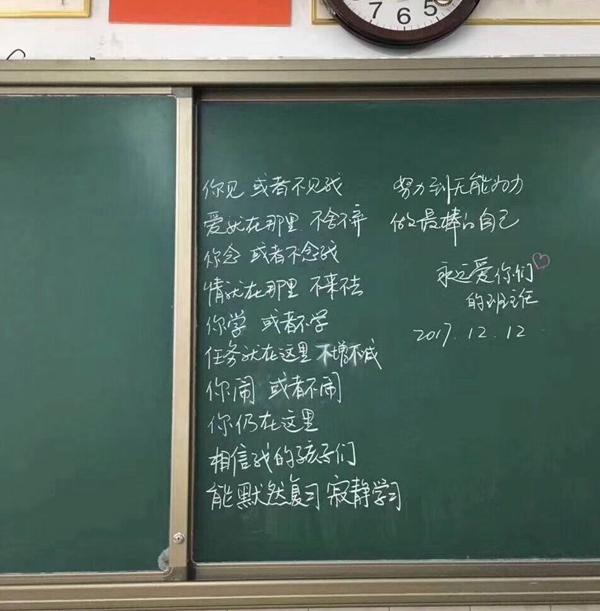 7 6 5
你见 或者不见我
爱就在那里 不舍不弃
你念 或者不念我
情就在那里 不来不去
你学 或者不学
任务就在这里 不增不减
你闹 或者不闹
你仍在这里
相信我的孩子们
能默然复习 寂静学习
努力到无能为力
做最棒的自己
永远爱你们
的班主任
2017.12.12